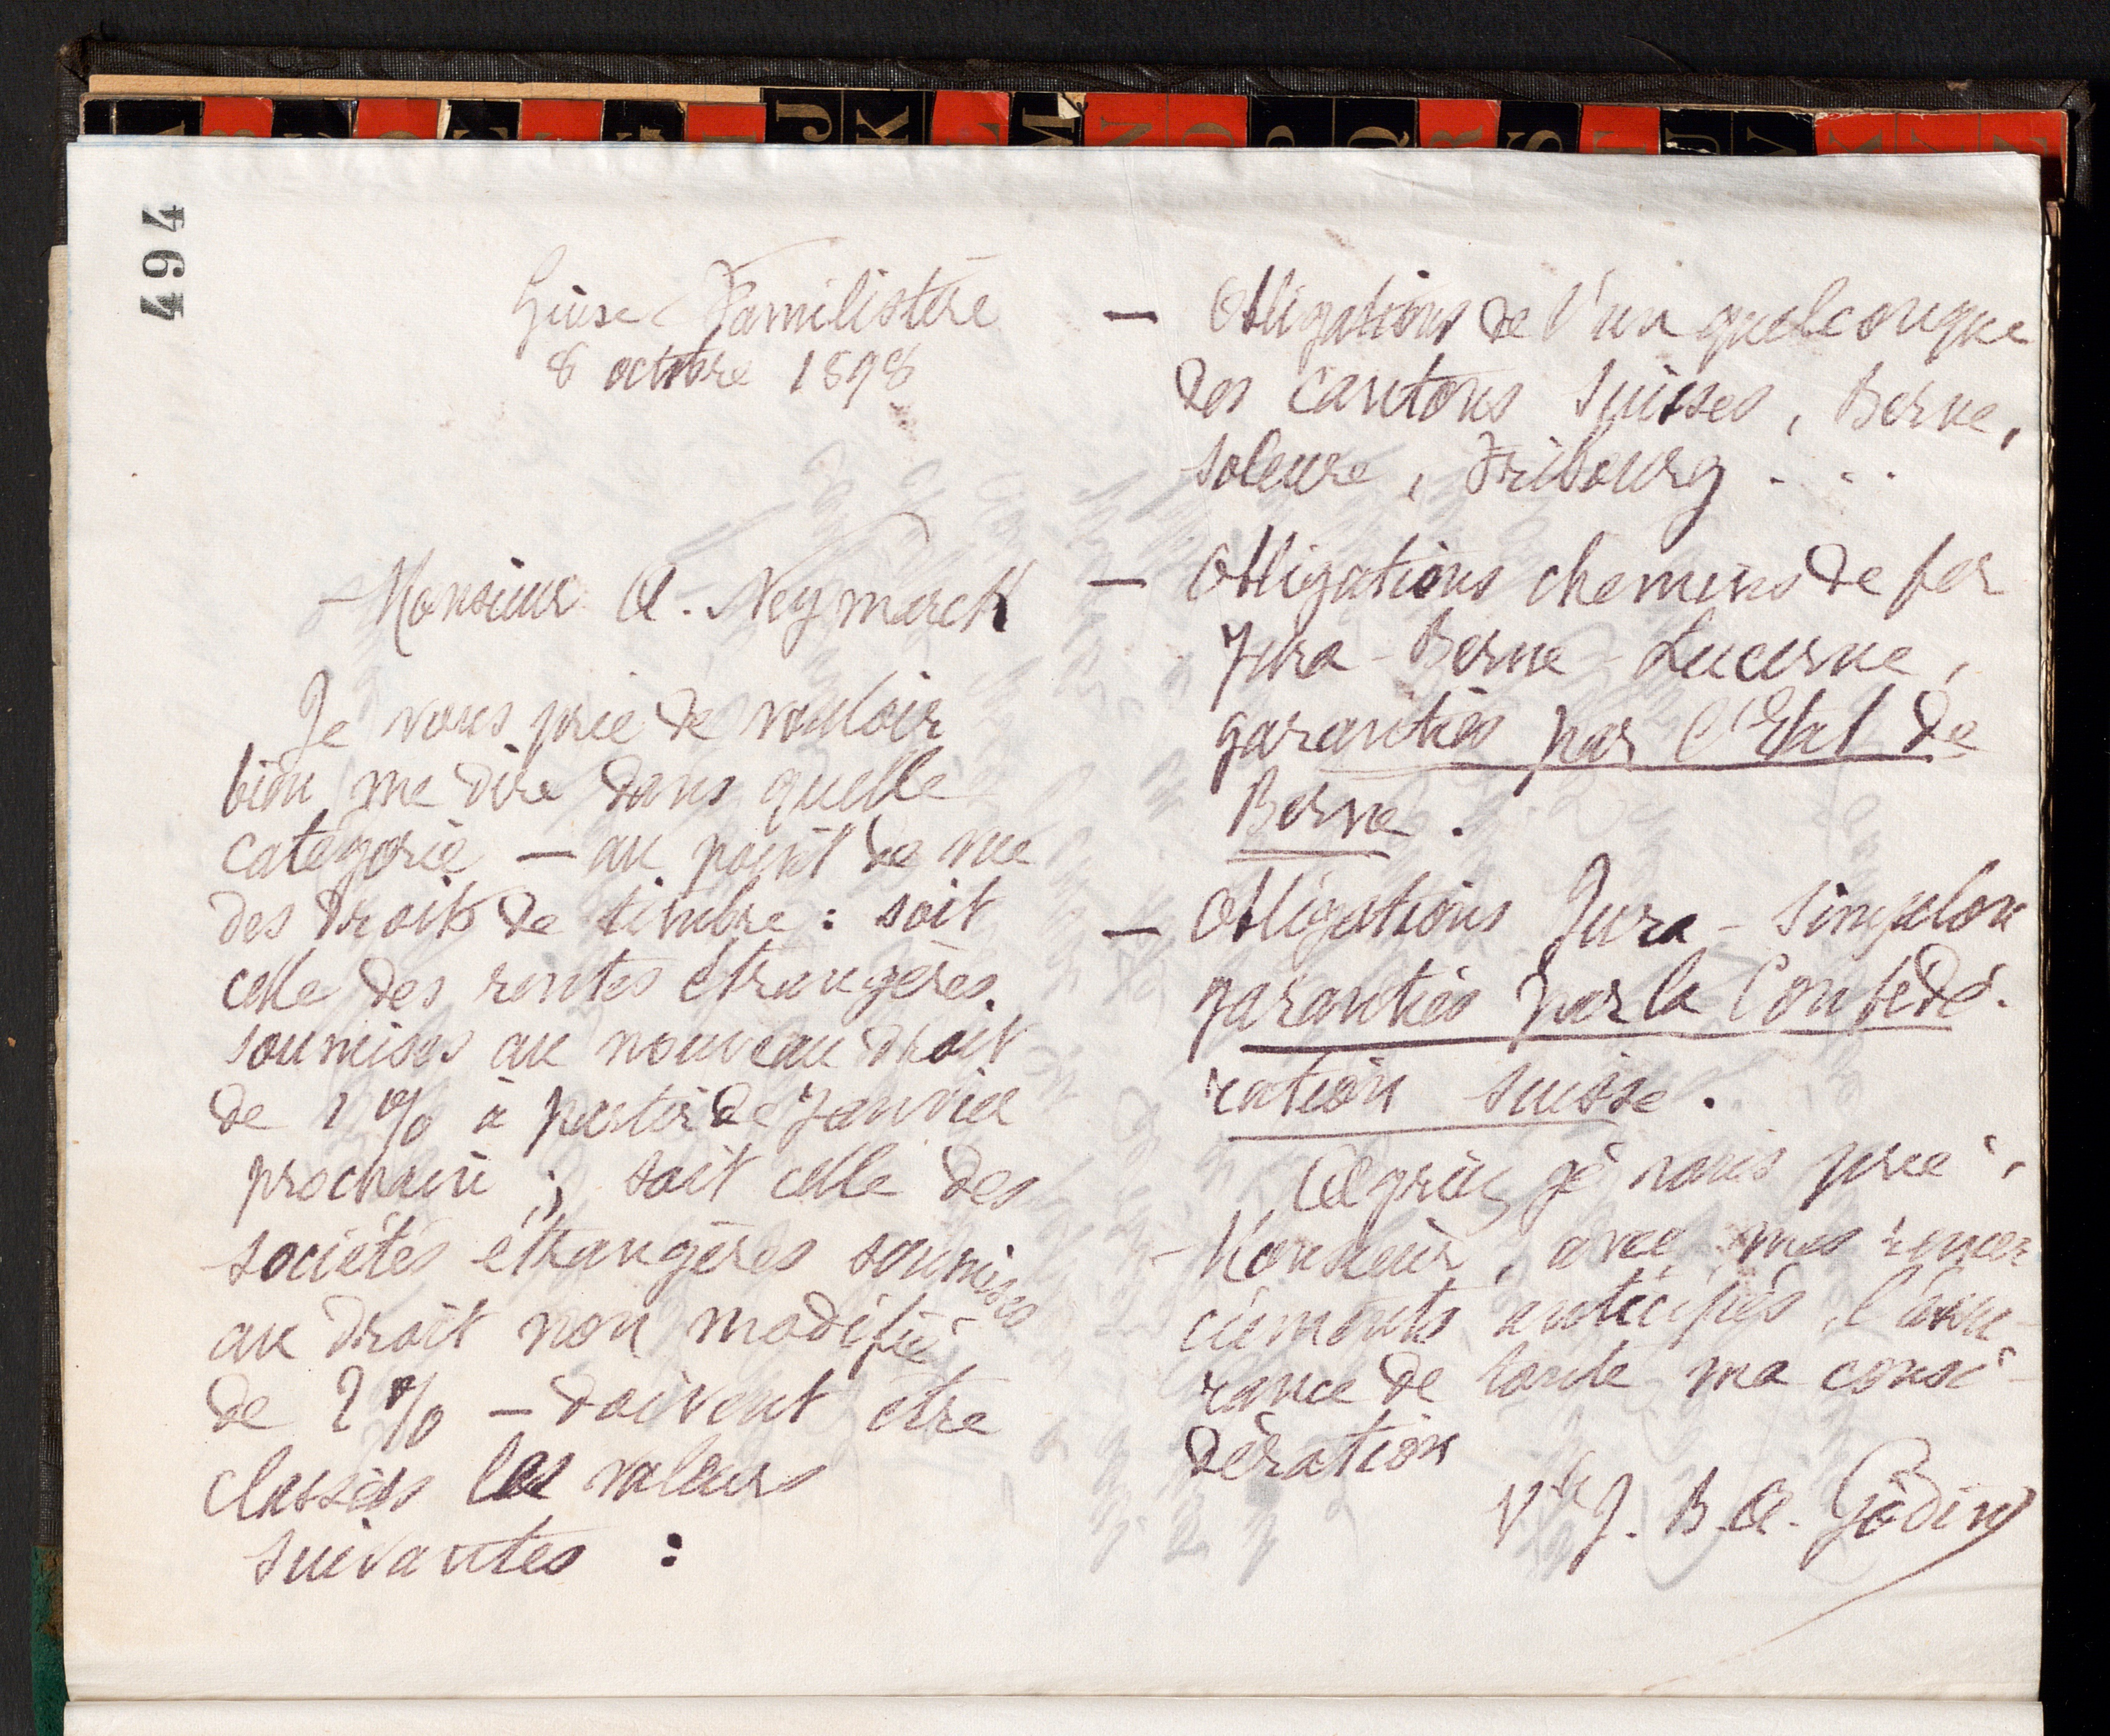 J K L M N O P Q R S T U V X Y Z
494
Guise Familistère
8 octobre 1898
Monsieur A. Neymarck
Je vous prie de vouloir
bien me dire dans quelle
catégorie — au point de vue
des droits de timbre : soit
celle des rentes étrangères
soumises au nouveau droit
de 1 % à partir de Janvier
prochain ; soit celle des
sociétés étrangères soumises
au droit non modifié
de 2 % — doivent être
classées les valeurs
suivantes :
— Obligations de l'un quelconque
des cantons suisses, Berne,
Soleure, Fribourg . . .
— Obligations chemins de fer
Jura - Berne - Lucerne,
garanties par l'Etat de
Berne.
— Obligations Jura - Simplon
garanties par la Confédé-
ration suisse.
Agréez je vous prie,
Monsieur, avec mes remer
ciements anticipés, l'assu-
rance de toute ma consi-
dération
Vve J. B. A. Godin